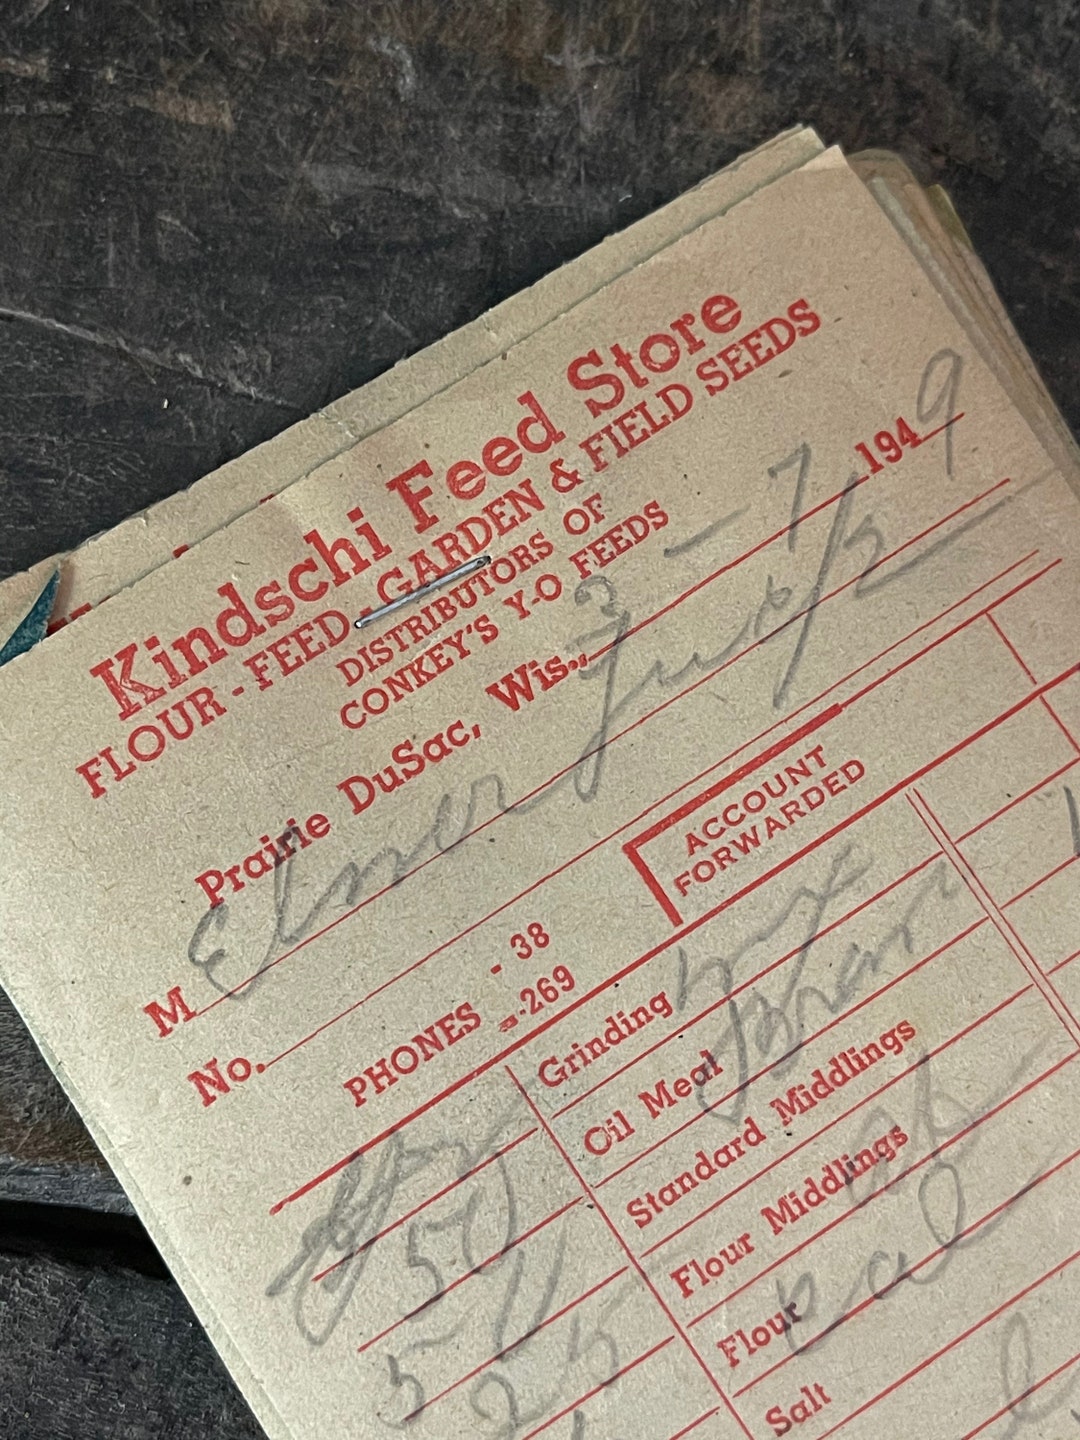 Kindschi Feed Store
FLOUR - FEED - GARDEN & FIELD SEEDS
DISTRIBUTORS OF
CONKEY'S Y-O FEEDS
Prairie DuSac, Wis., 3 - 7 1949
M Elmer
No.
PHONES - 38
- 269
ACCOUNT
FORWARDED
Grinding
Oil Meal
50
Standard Middlings
Flour Middlings
5
Flour
25
Salt